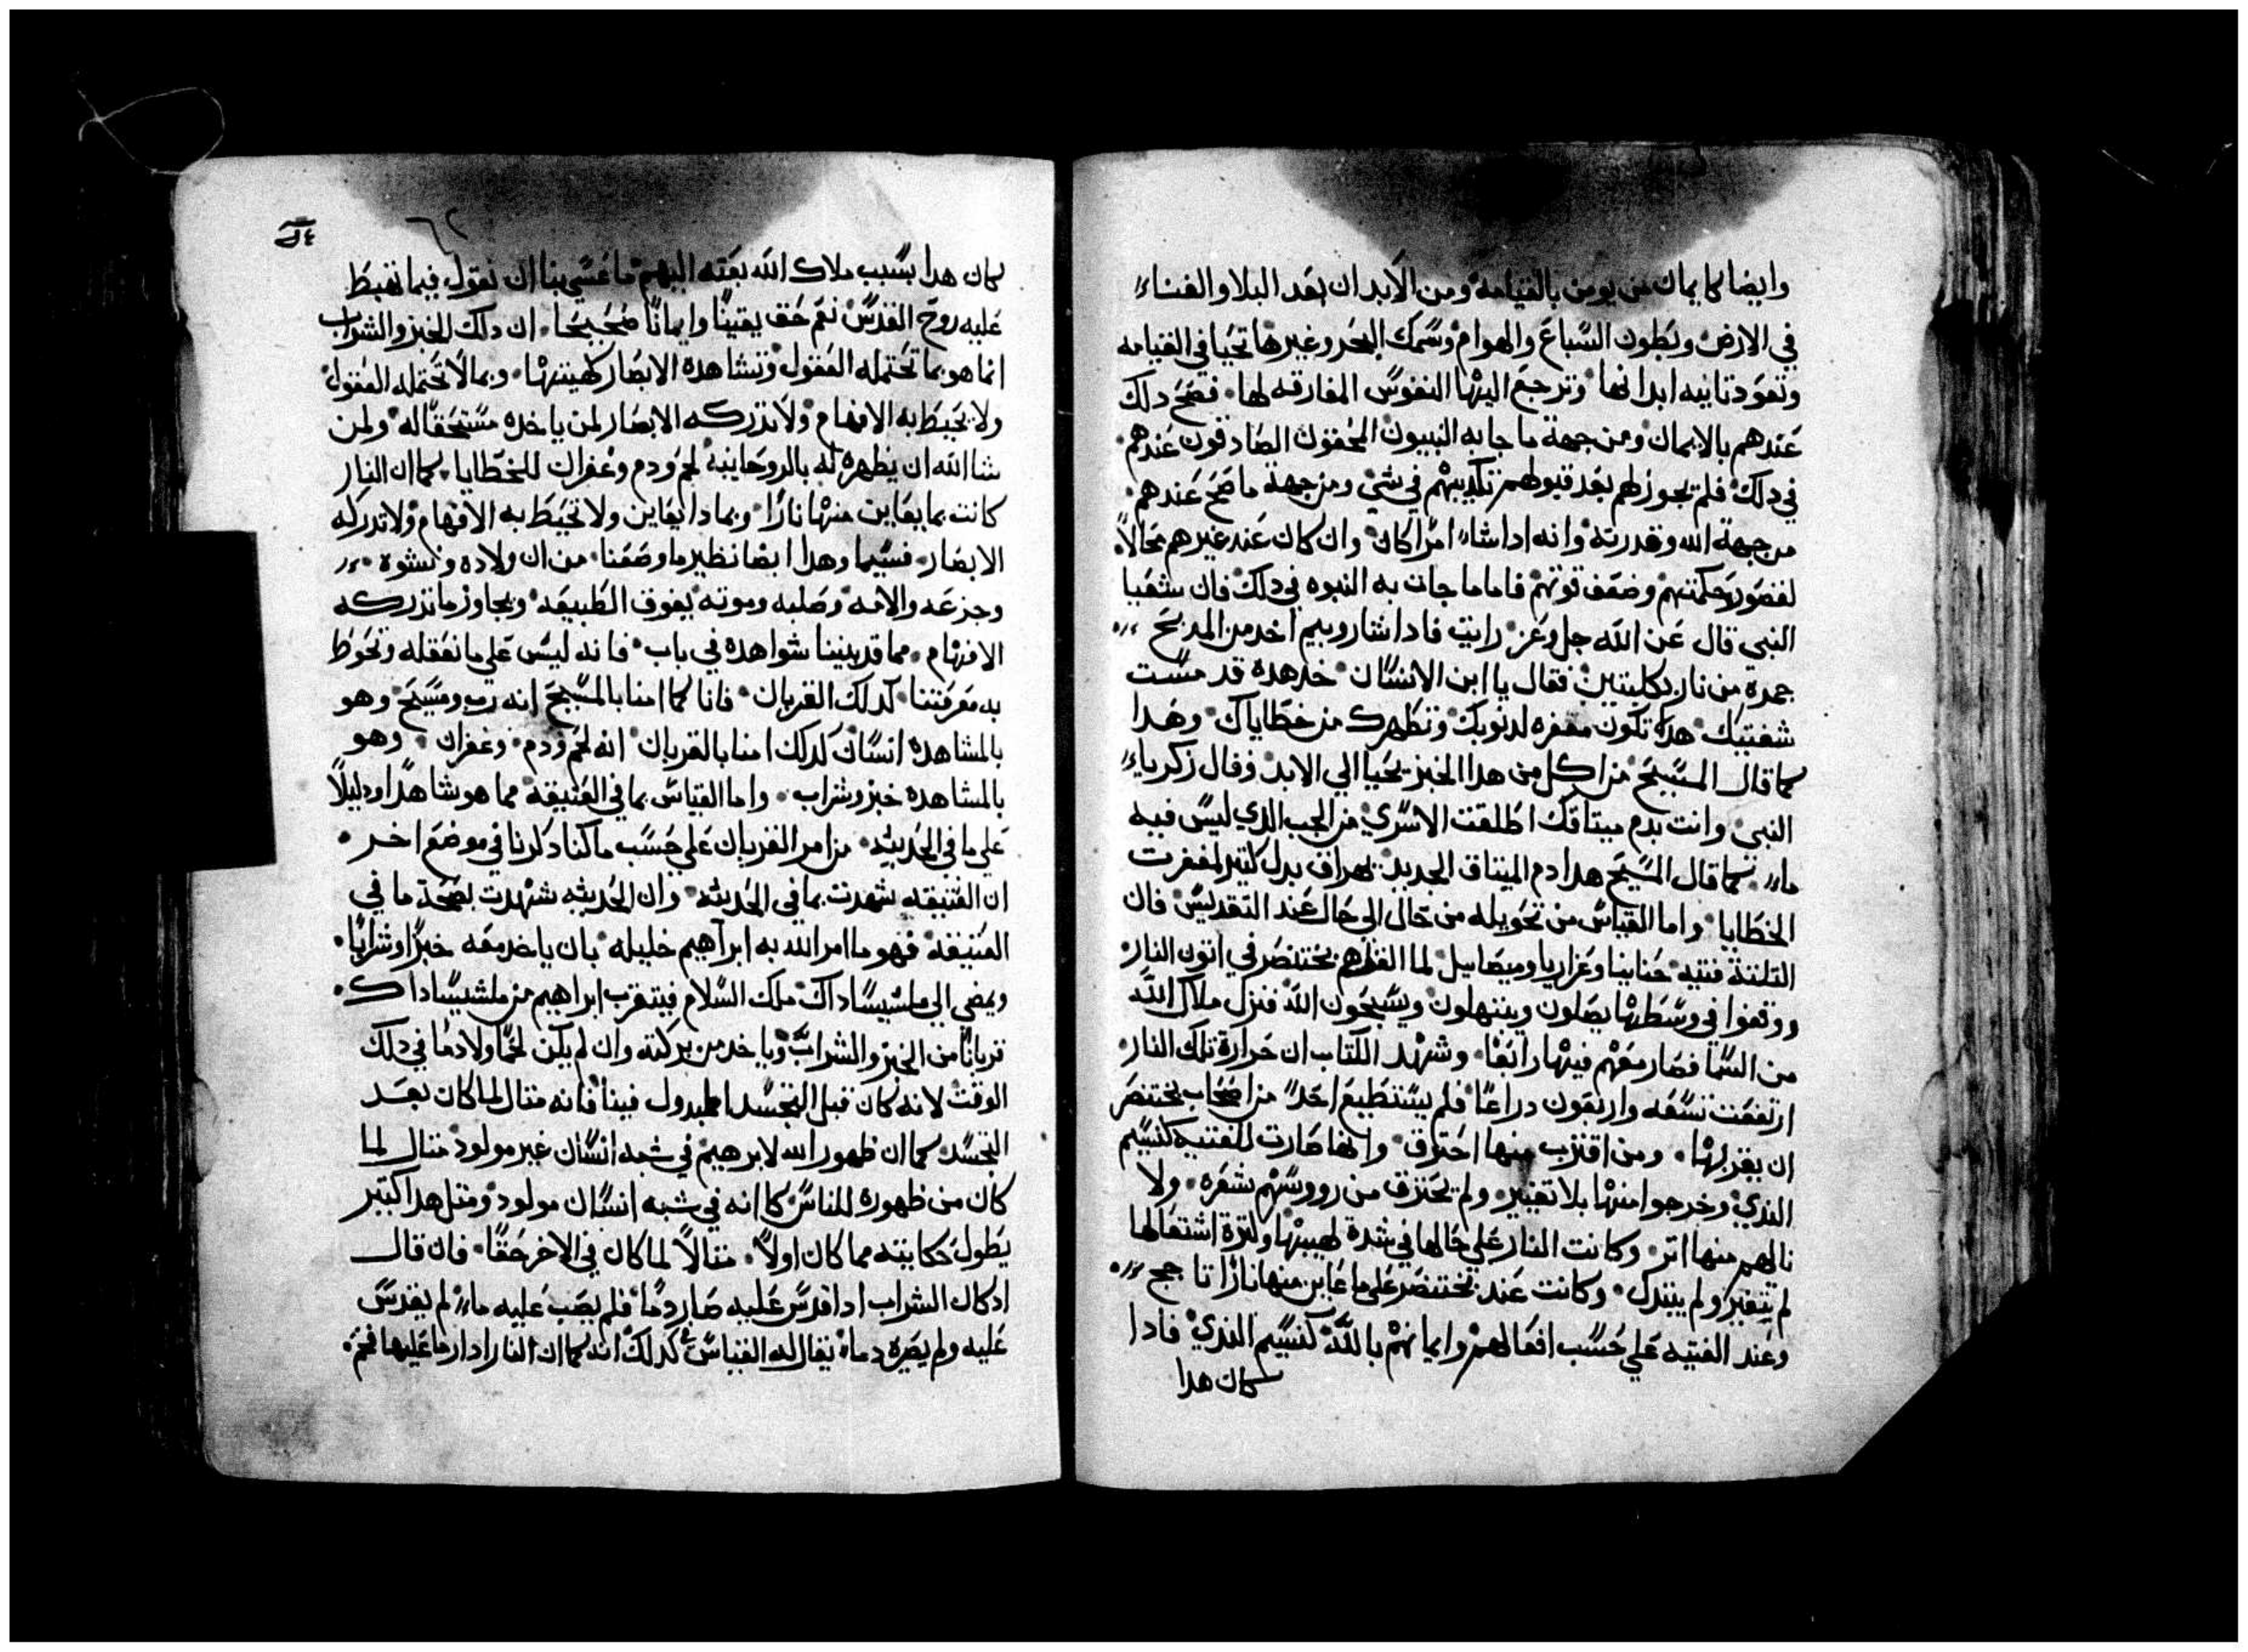 وايضا كايمان من يومن بالقيامة ومن الابدان بعد البلاوالفناء
في الارض وبطون السباع والهوام وسمك البحر وغيرها تحيا في القيامه
وتعود تانيه ابدانها وترجع اليها النفوس المفارقه لها فصح دلك
عندهم بالايمان ومن جهة ما جا به النبيون المحقون الصادقون عندهم
في دلك فلم يجوز لهم بعد قبولهم تكديبهم في شي ومن جهة ما صح عندهم
من جهة الله وقدرته وانه ادا شاء امرا كان وان كان عند غيرهم محالا
لقصور حكمتهم وضعف قوتهم فاما ما جات به النبوه في دلك فان شعيا
النبي قال عن الله جل وعز رايت فادا شاروبيم اخد من المدبح
جمرة من نار بكلبتين فقال يا ابن الانسان خد هده قد مست
شفتيك هده تكون مغفره لدنوبك وتطهرك من خطاياك وهدا
كما قال المسيح من اكل من هدا الخبز يحيا الي الابد وقال زكرياء
النبي وانت بدم ميتاقك اطلقت الاسري من الجب الدي ليس فيه
ماء كما قال المسيح هدا دم الميتاق الجديد يهراق بدل كتير لمغفرت
الخطايا واما القياس من تحويله من حال الي حال عند التقديس فان
التلتة فتيه حنانيا وعزاريا وميصاييل لما القاهم بختنصر في اتون النار
ووقعوا في وسطها يصلون ويبتهلون ويسبحون الله فنزل ملاك الله
من السما فصار معهم فيها رابعا وشهد الكتاب ان حرارة تلك النار
ارتفعت تسعه واربعون دراعا فلم يستطيع احد من اصحاب بختنصر
ان يقربها ومن اقترب منها احترق وانها صارت للفتيه كنسيم
الندي وخرجوا منها بلا تغيير ولم يحترق من رووسهم شعره ولا
نالهم منها اتر وكانت النار علي حالها في شدة لهيبها وكترة اشتعالها
لم يتغير ولم يتبدل وكانت عند بختنصر علي ما عاين منها نارا تاجج
وعند الفتيه علي حسب افعالهم وايمانهم بالله كنسيم الندي فادا
كان هدا
٦٢
كان هدا بسبب ملاك الله بعته اليهم ما عسي بنا ان نقول فيما تهبط
عليه روح القدس نعم حق يقينا وايمانا صحيحا ان دلك الخبز والشراب
انما هو بما تحتمله العقول وتشاهده الابصار كهيتها وبما لا تحتمله العقول
ولا تحيط به الافهام ولا تدركه الابصار لمن ياخده مستحقا له ولمن
شا الله ان يظهره له بالروحانية لحم ودم وغفران للخطايا كما ان النار
كانت بما يعاين منها نارا وبما دا يعاين ولا تحيط به الافهام ولا تدركه
الابصار نسيما وهدا ايضا نظير ما وصفنا من ان ولاده ونشوه
وجزعه والامه وصلبه وموته يفوق الطبيعه ويجاوز ما تدركه
الافهام مما قد بينا شواهده في باب فانه ليس علي ما نعقله وتحوط
به معرفتنا كدلك القربان فانا كما امنا بالمسيح انه رب ومسيح وهو
بالمشاهده انسان كدلك امنا بالقربان انه لحم ودم وغفران وهو
بالمشاهده خبز وشراب واما القياس بما في العتيقة مما هو شاهدا ودليلا
علي ما في الحديته من امر القربان علي حسب ما كنا دكرنا في موضع اخر
ان العتيقه شهدت بما في الحديته وان الحديثه شهدت بصحة ما في
العتيقة فهو ما امر الله به ابراهيم خليله بان ياخد معه خبزا وشرابا
ويمضي الي ملشيساداك ملك السلام فيتقرب ابراهيم من ملشيساداك
قربانا من الخبز والشراب وياخد من بركته وان لم يكن لحما ولا دما في دلك
الوقت لانه كان قبل التجسد فينا فانه متال لما كان بعد
التجسد كما ان ظهور الله لابرهيم في شبه انسان غير مولود متال لما
كان من ظهوره للناس كانه في شبه انسان مولود ومتل هدا كتير
يطول حكايته مما كان اولا متالا لما كان في الاخر حقا فان قال
ادكان الشراب ادا قدس عليه صار دما فلم يصب عليه ماء لم يقدس
عليه ولم يصره دما نقال له القياس في كدلك انه كما ان النار ادا رما عليها فحم